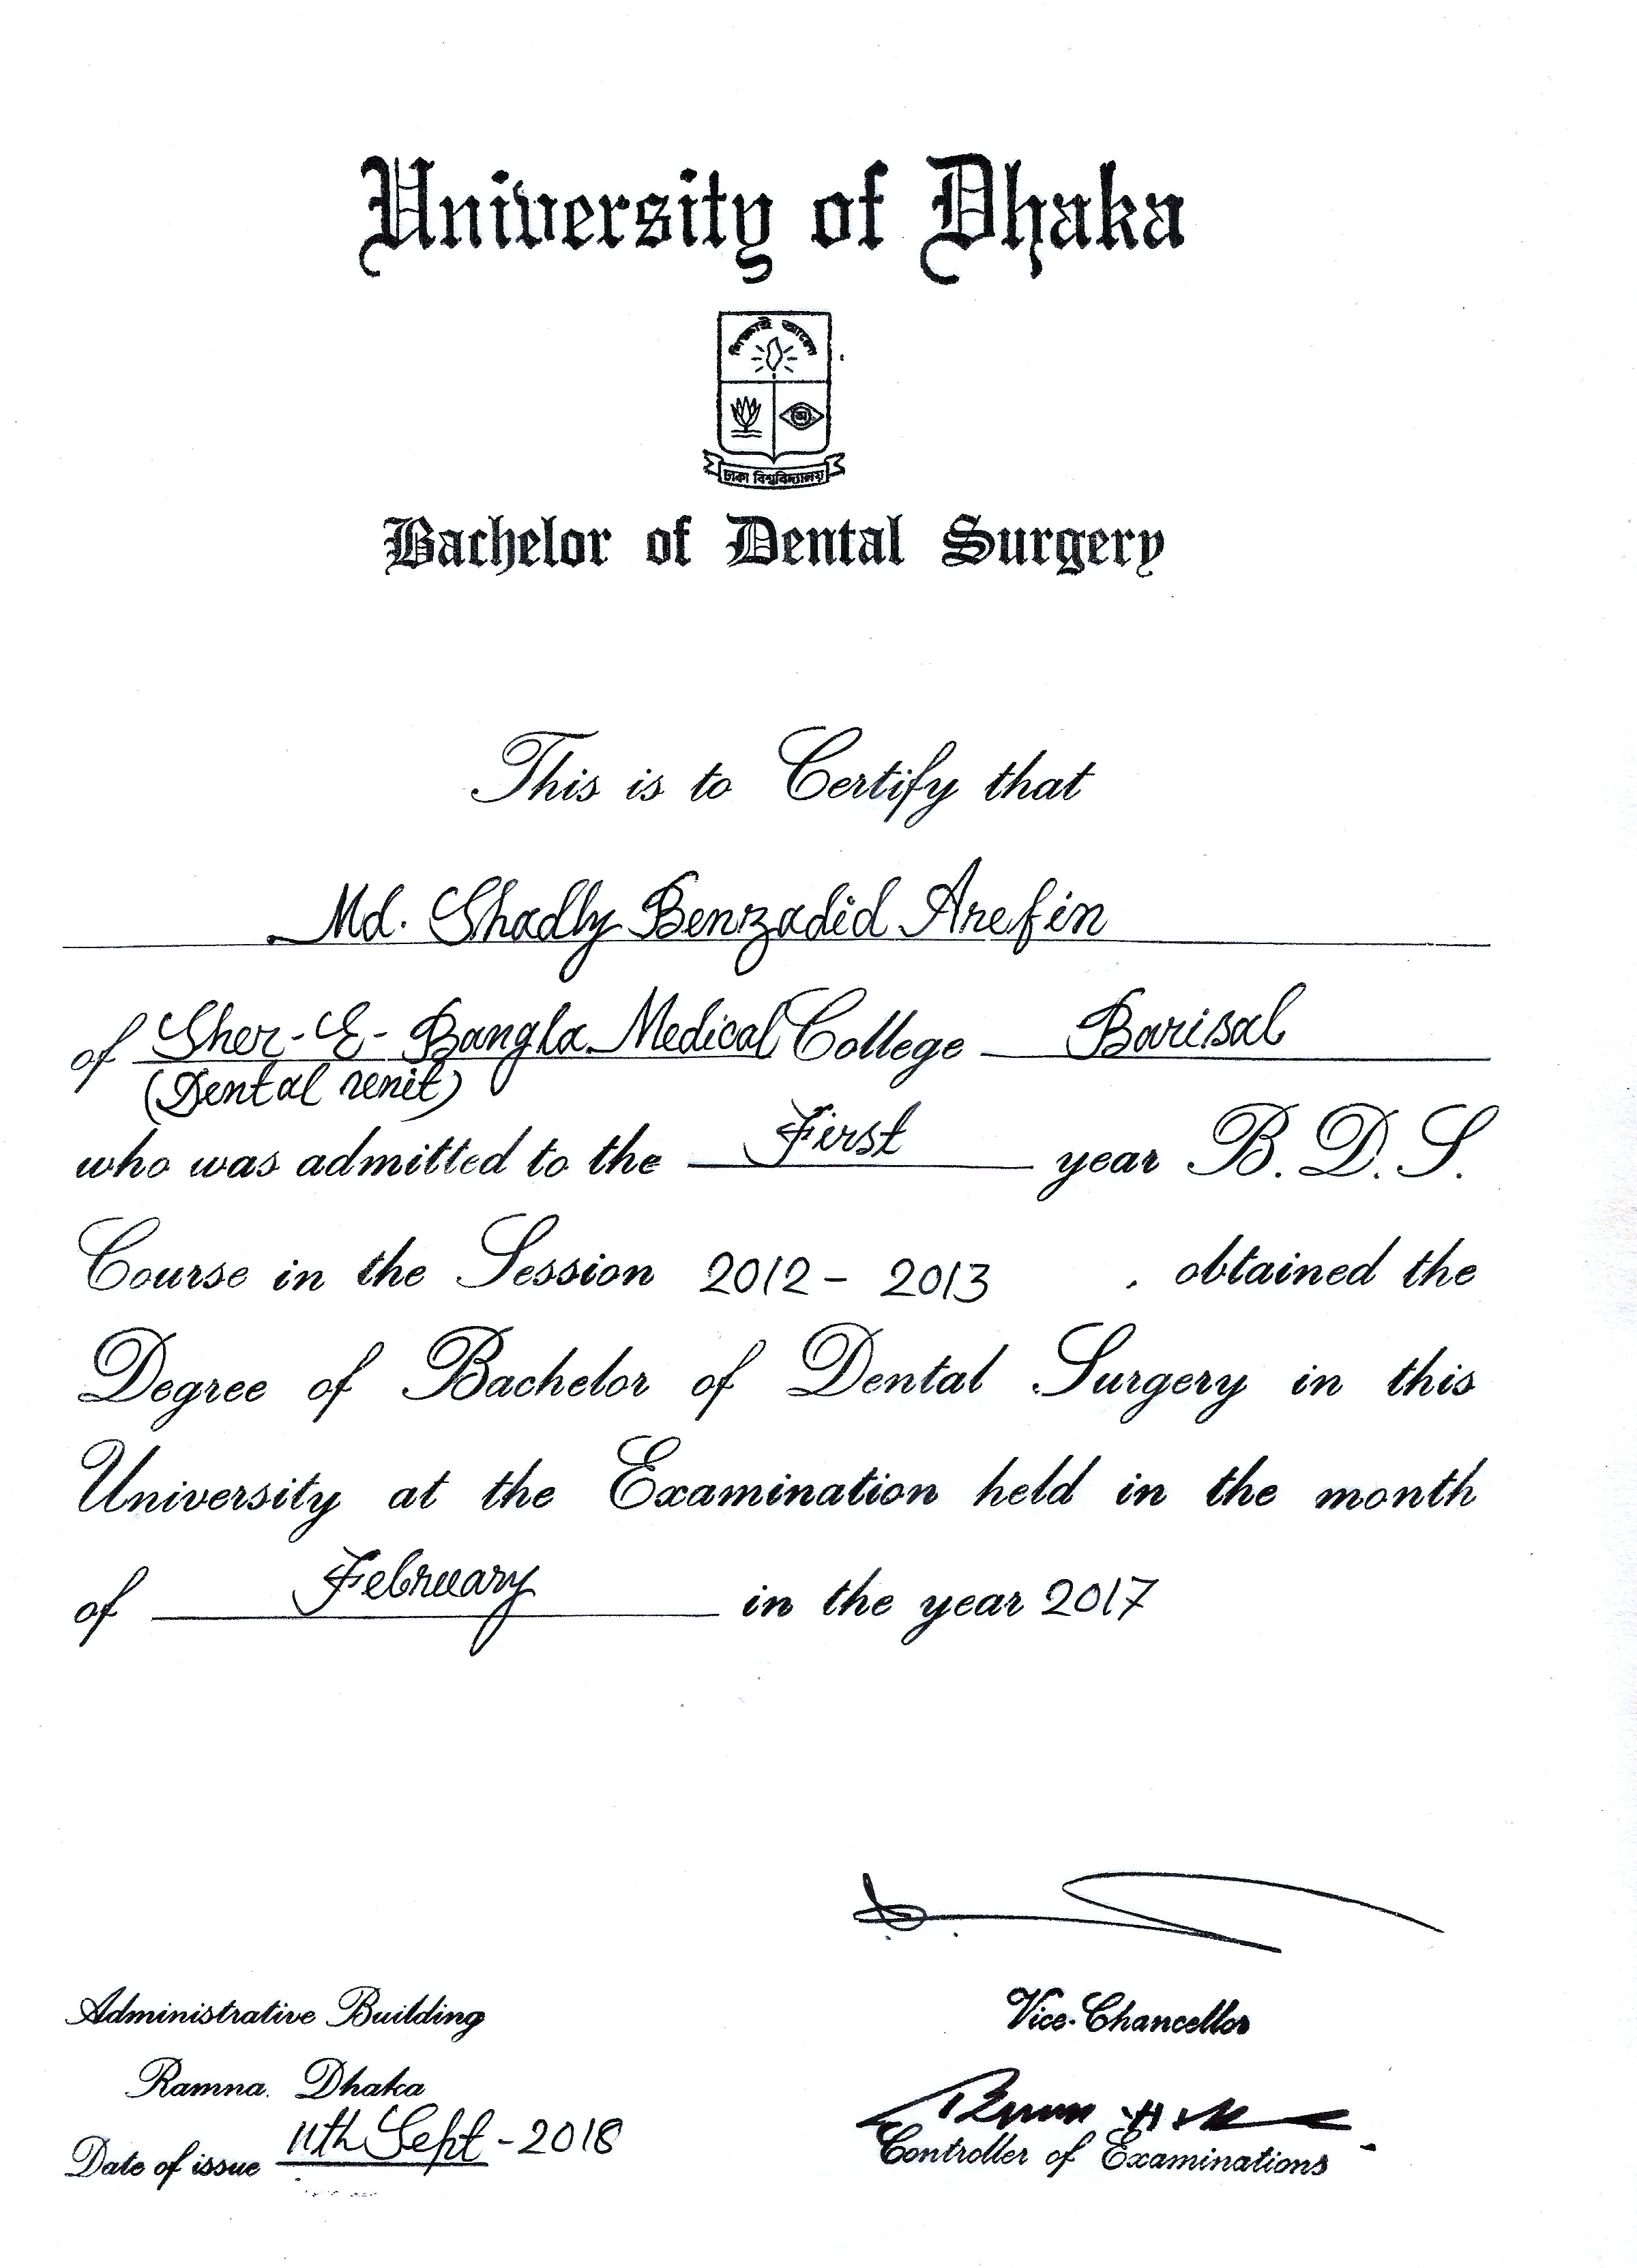 University of Dhaka
শিক্ষাই আলো
ঢাকা বিশ্ববিদ্যালয়
Bachelor of Dental Surgery
This is to Certify that
Md. Shadly Benzadid Arefin
of Sher-E-Bangla Medical College Barisal
(Dental unit)
who was admitted to the First year B. D. S.
Course in the Session 2012 - 2013 . obtained the
Degree of Bachelor of Dental Surgery in this
University at the Examination held in the month
of February in the year 2017
Administrative Building
Vice-Chancellor
Ramna. Dhaka
Date of issue 11th Sept - 2018
Controller of Examinations